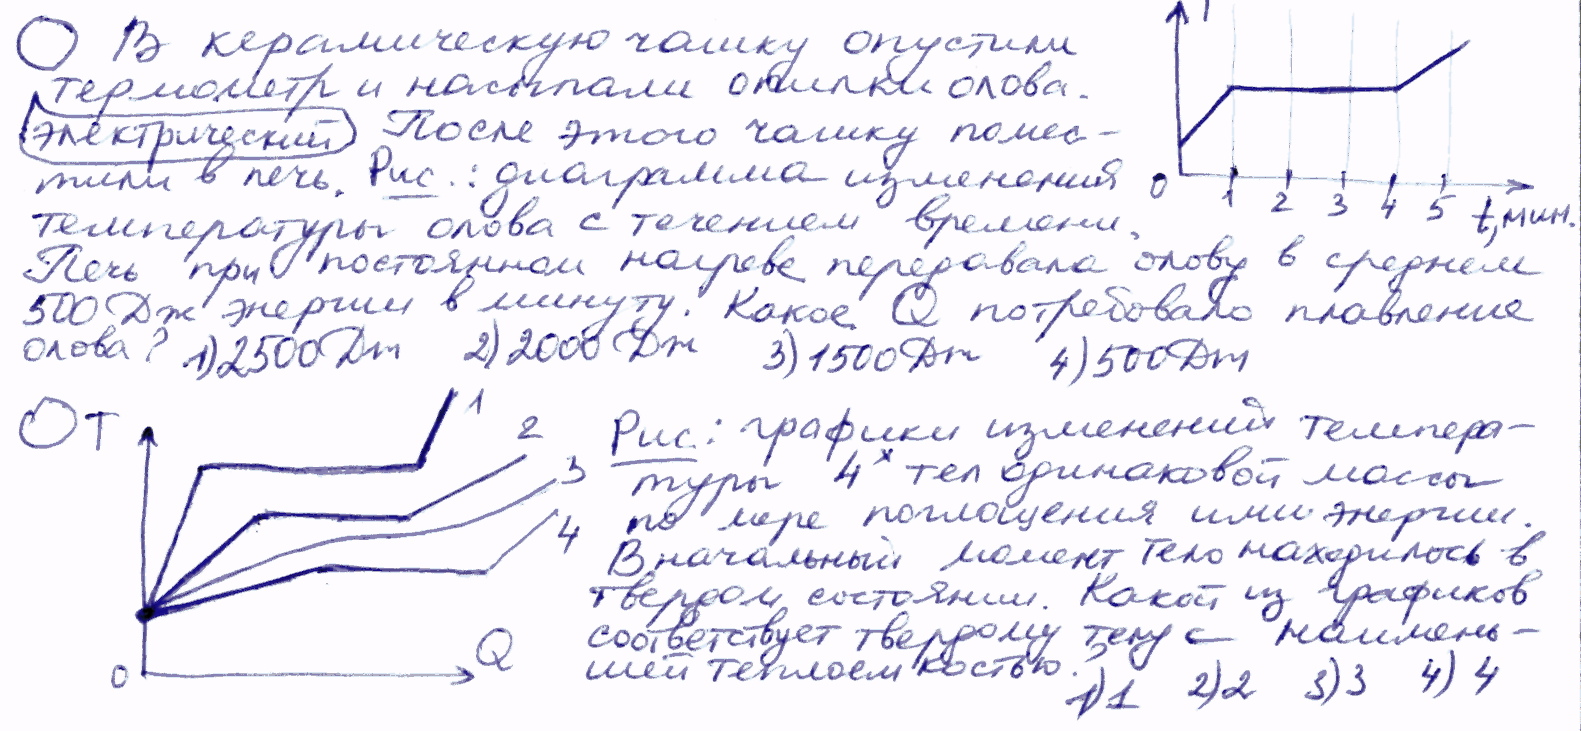 В керамическую чашку опустили
термометр и насыпали опилки олова.
электрический После этого чашку помес-
тили в печь. Рис.: диаграмма изменения
температуры олова с течением времени.
Печь при постоянном нагреве передавала олову в среднем
500 Дж энергии в минуту. Какое Q потребовало плавление
олова? 1) 2500 Дж 2) 2000 Дж 3) 1500 Дж 4) 500 Дж
0 1 2 3 4 5 t, мин.
T
1
2
3
4
0
Q
Рис.: графики изменений темпера-
туры 4х тел одинаковой массы
по мере поглощения ими энергии.
В начальный момент тело находилось в
твердом состоянии. Какой из графиков
соответствует твердому телу с наимень-
шей теплоемкостью?
1) 1 2) 2 3) 3 4) 4